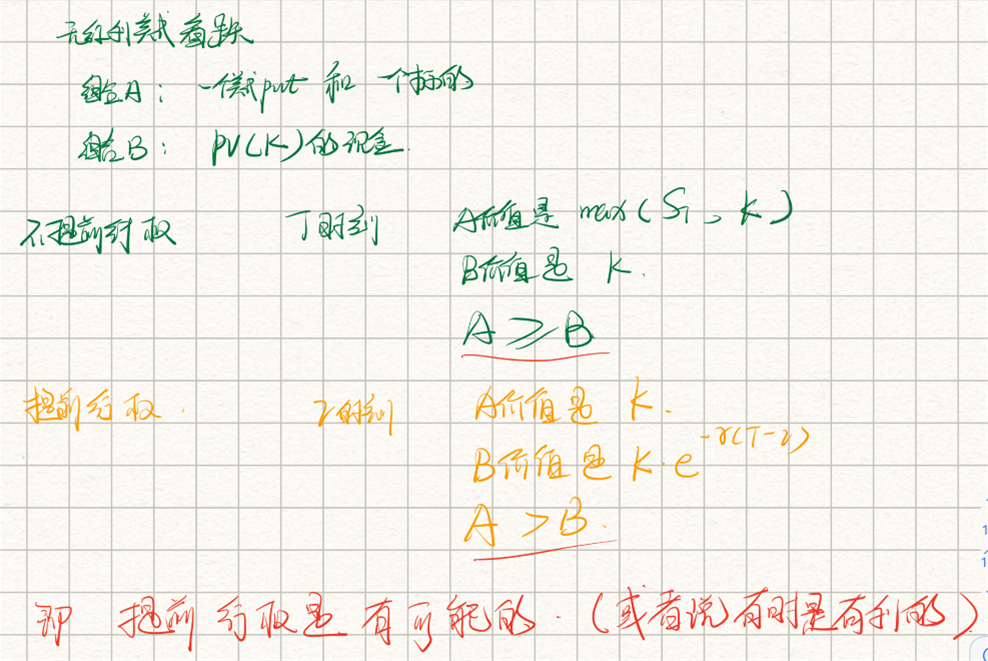 无红利美式看跌
组合A： 一个美式put 和 一个标的
组合B： PV(K)的现金.
不提前行权 T时刻 A价值是 max(S_T, K)
B价值是 K.
A ≥ B
提前行权. τ时刻 A价值是 K.
B价值是 K·e^{-r(T-τ)}
A > B.
即 提前行权是有可能的.(或者说有时是有利的)